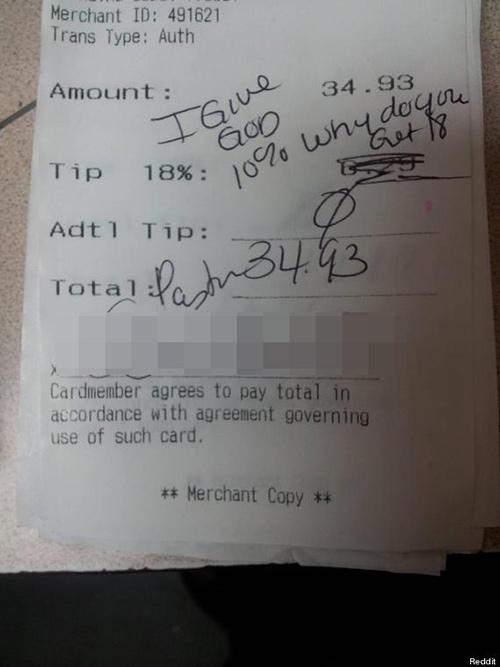 Merchant ID: 491621
Trans Type: Auth
Amount: 34.93
I Give
God
10% Why do you
Get 18
Tip 18%:
Adtl Tip: 0
Total: Pastor 34.93
x
Cardmember agrees to pay total in
accordance with agreement governing
use of such card.
** Merchant Copy **
Reddit